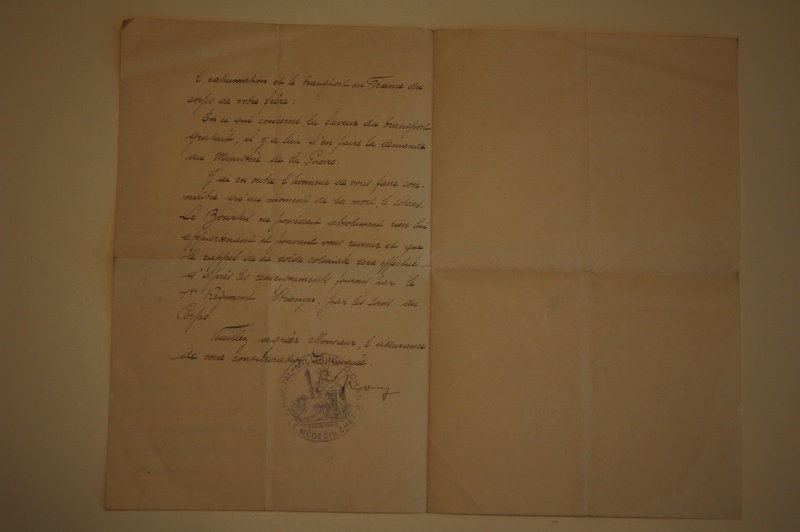 l'exhumation et le transport en France du
corps de votre frère.
En ce qui concerne la faveur du transport
gratuit, il y a lieu d'en faire la demande
au Ministère de la Guerre.
J'ai en outre l'honneur de vous faire con-
naître qu'au moment de sa mort le soldat
Le ne possédait absolument rien lui
appartenant et pouvant vous revenir et que
le rappel de la solde coloniale sera effectué
d'après les renseignements fournis par le
Régiment Etranger, par les soins du
Corps.
Veuillez agréer Monsieur, l'assurance
de ma considération distinguée.
LE MÉDECIN CHEF